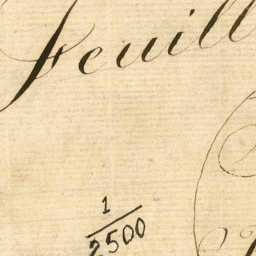 Feuill
1/2500